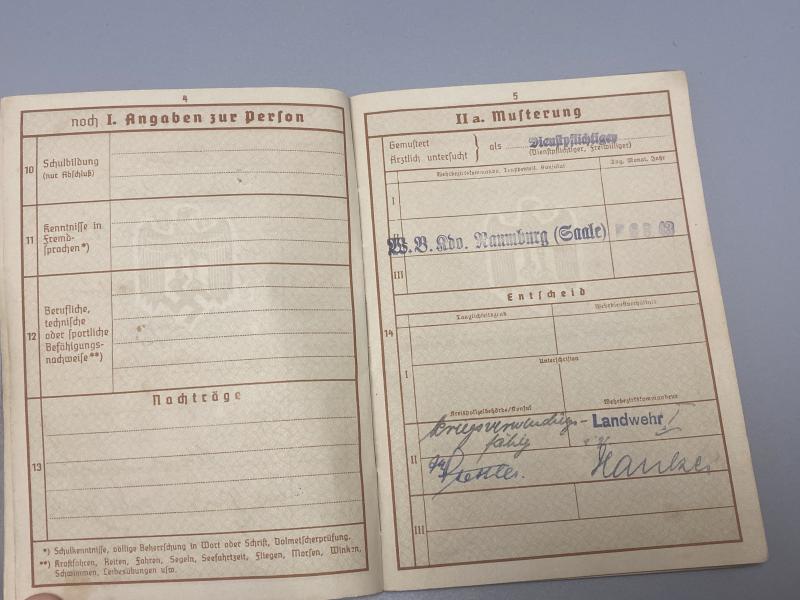 4
noch I. Angaben zur Person
10
Schulbildung
(nur Abschluß)
11
Kenntnisse in
Fremd-
sprachen*)
12
Berufliche,
technische
oder sportliche
Befähigungs-
nachweise**)
Nachträge
13
*) Schulkenntnisse, völlige Beherrschung in Wort oder Schrift, Dolmetscherprüfung.
**) Kraftfahren, Reiten, Fahren, Segeln, Seefahrtzeit, Fliegen, Morsen, Winken,
Schwimmen, Leibesübungen usw.
5
IIa. Musterung
Gemustert
Ärztlich untersucht
als Dienstpflichtiger
(Dienstpflichtiger, Freiwilliger)
Wehrbezirkskommando, Truppenteil, Konsulat
Tag, Monat, Jahr
I
II
W. B. Kdo. Naumburg (Saale)
III
Entscheid
Tauglichkeitsgrad
Wehrdienstverhältnis
14
I
Unterschriften
Kreispolizeibehörde/Konsul
Wehrbezirkskommandeur
II
kriegsverwendungs-
fähig
Landwehr I
III